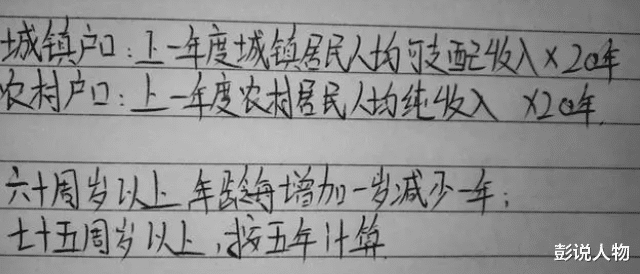 城镇户口:上一年度城镇居民人均可支配收入×20年
农村户口:上一年度农村居民人均纯收入 ×20年.
六十周岁以上 年龄每增加一岁减少一年;
七十五周岁以上,按五年计算
彭说人物